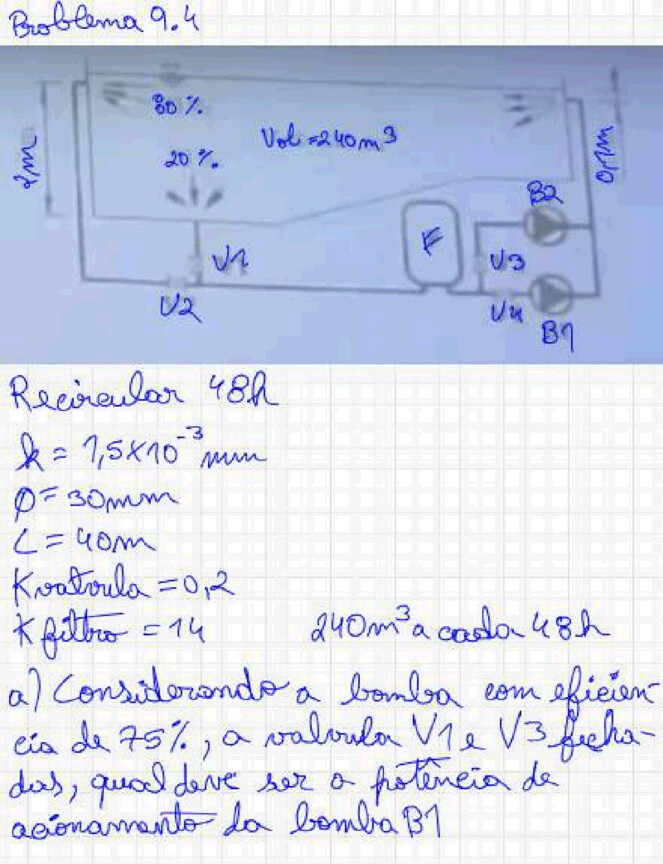 Problema 9.4
80 %
Vol = 240 m³
20 %
2m
0,1m
B2
F
V1
V3
V2
V4
B1
Recircular 48h
k = 1,5x10⁻³ mm
Ø = 30mm
L = 40m
Kvalvula = 0,2
Kfiltro = 14 240m³ a cada 48h
a) Considerando a bomba com eficien-
cia de 75%, a valvula V1 e V3 fecha-
das, qual deve ser a potência de
acionamento da bomba B1